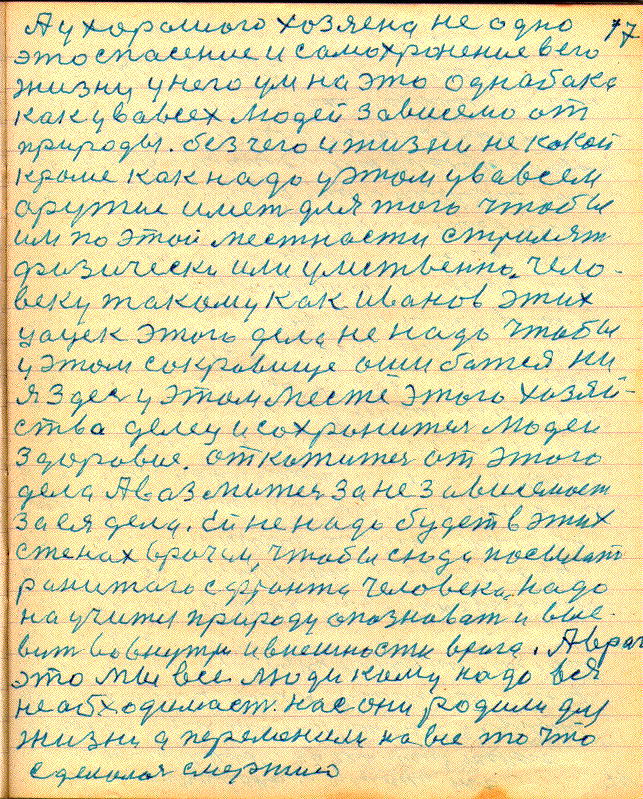 17
А у хорошого хозяена не одно
это спасение и самохронение в его
жизни у него ум на это однабака
как у вавсех людей зависемо от
природы. без чего и жизни не какой
кроме как надо у этом у вавсем
оружие имет для того чтобы
им по этой местности стрилят
физически или умственно. Чело-
веку такому как Иванов этих
цацек этого дела не надо чтобы
у этом сокровище ошибатся ни
я здес у этом месте этого хозяй-
ства делец и сохронител людей
здоровие. откотител от этого
дела А вазмител за не зависемост
за ея дела. Ей не надо будет в этих
стенах врачам, чтобы сюда посылат
ранитого с фронта человека, надо
научител природу опознават и выe-
вит вовнутри и внешности врага. А враг
это мы все люди кому надо вся
необходимост. нас они родили для
жизни а переменили на все то что
сделолос смертию